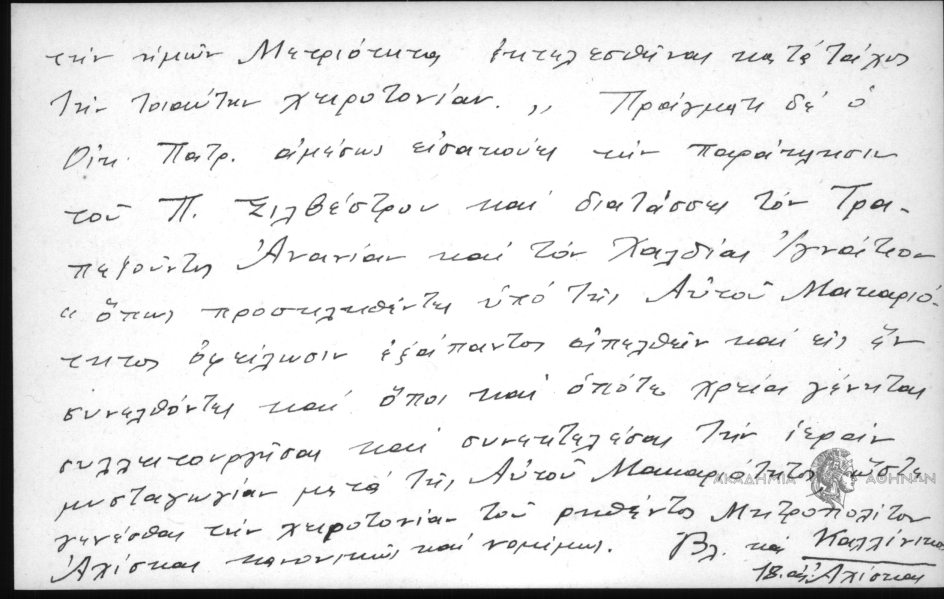 τὴν ἡμῶν Μετριότητα ἐκτελεσθῆναι κατὰ τάχος
τὴν τοιαύτην χειροτονίαν.,, Πράγματι δὲ ὁ
Οἰκ. Πατρ. ἀμέσως εἰσακούει τὴν παράκλησιν
τοῦ Π. Σιλβέστρου καὶ διατάσσει τὸν Τρα-
πεζοῦντος Ἀνανίαν καὶ τὸν Χαλδίας Ἰγνάτιον
“ ὅπως προσκληθέντες ὑπὸ τῆς Αὐτοῦ Μακαριό-
τητος ὀφείλωσιν ἐξάπαντος ἀπελθεῖν καὶ εἰς ἓν
συνελθόντες καὶ ὅποι καὶ ὁπότε χρεία γένηται
συλλειτουργῆσαι καὶ συνεκτελέσαι τὴν ἱερὰν
μυσταγωγίαν μετὰ τῆς Αὐτοῦ Μακαριότητος, ὥστε
γενέσθαι τὴν χειροτονίαν τοῦ ρηθέντος Μητροπολίτου
Ἀχίσκας κανονικῶς καὶ νομίμως. Βλ. καὶ Καλλίνικος
Ἀχίσκας
ΑΚΑΔΗΜΙΑ ΑΘΗΝΩΝ